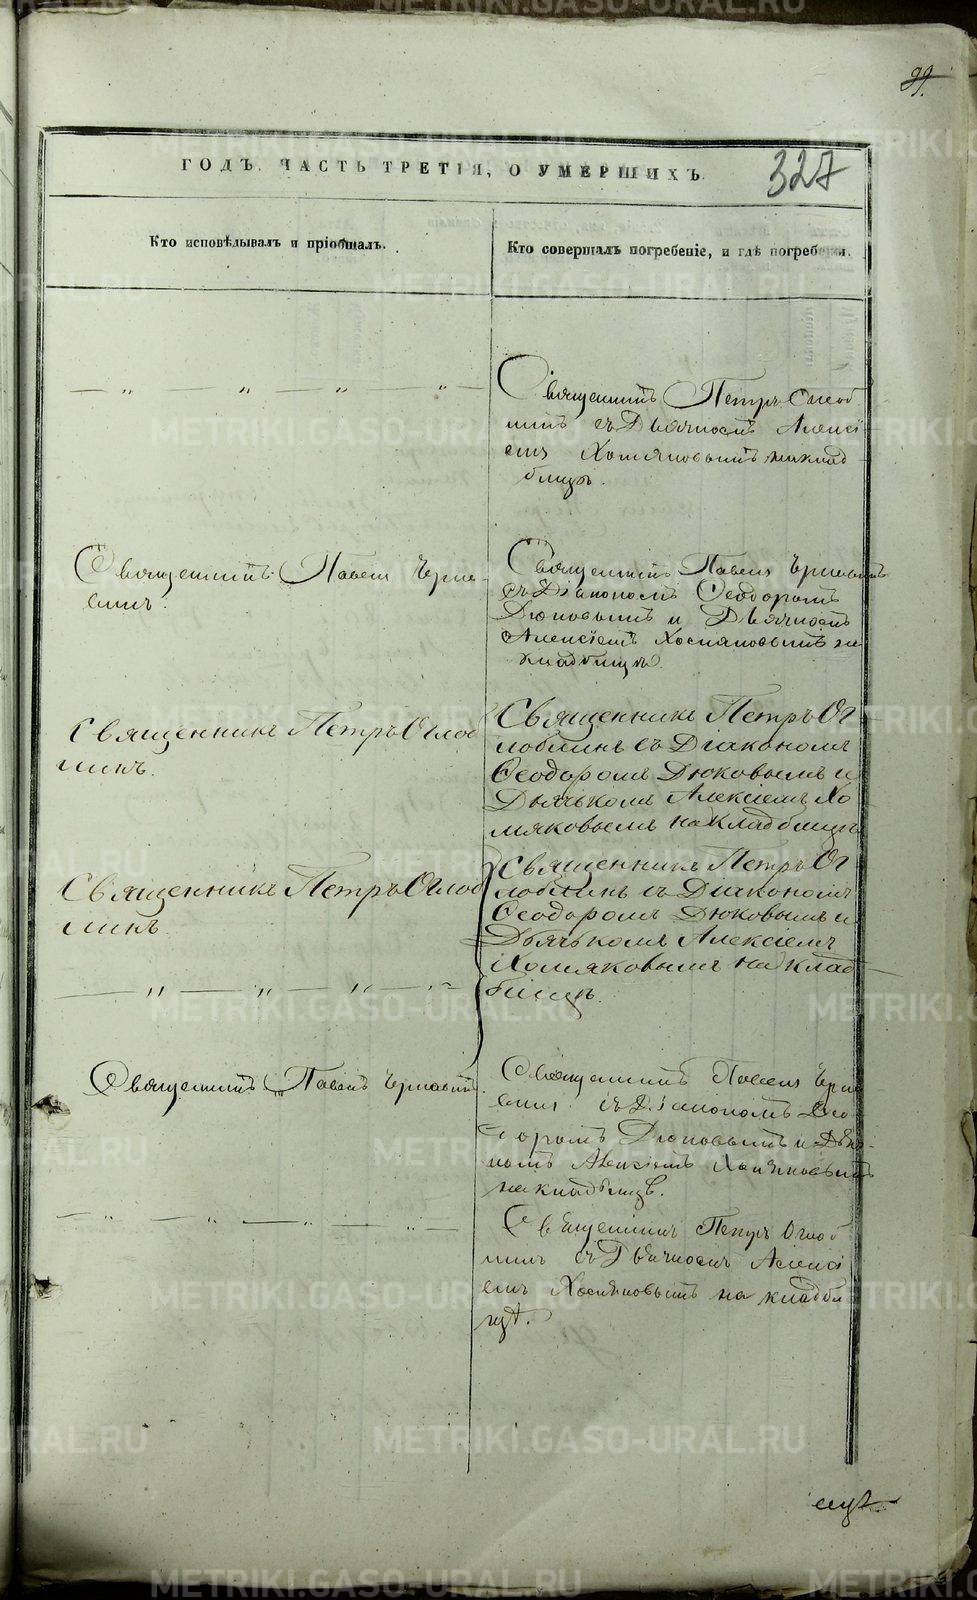 99.
ГОДЪ. ЧАСТЬ ТРЕТІЯ, О УМЕРШИХЪ.
327
Кто исповѣдывалъ и пріобщалъ.
Кто совершалъ погребеніе, и гдѣ погребены.
— „ — „ — „ — „ —
Священникъ Петръ Оглоб
линъ съ Дьячкомъ Алексі
емъ Хомяковымъ на клад
бищѣ.
Священникъ Павелъ Черня
евъ.
Священникъ Павелъ
съ Діакономъ Ѳеодоромъ
Дюковымъ и Дьячкомъ
Алексіемъ Хомяковымъ на
кладбищѣ.
Священникъ Петръ Оглоб
линъ.
Священникъ Петръ Ог
лоблинъ съ Діакономъ
Ѳеодоромъ Дюковымъ и
Дьячькомъ Алексіемъ Хо
мяковымъ на кладбищѣ
Священникъ Петръ Оглоб
линъ.
Священникъ Петръ Ог
лоблинъ съ Діакономъ
Ѳеодоромъ Дюковымъ и
Дьячькомъ Алексіемъ
Хомяковымъ на клад
бищѣ.
— „ — „ — „ — „ —
Священникъ Павелъ
Священникъ Павелъ
съ Діакономъ Ѳео
доромъ Дюковымъ и Дьяч
комъ Алексіемъ Хомяковымъ
на кладбищѣ.
— „ — „ — „ —
Священникъ Петръ Оглоб
линъ съ Дьячкомъ Алексі
емъ Хомяковымъ на кладби
щѣ.
METRIKI.GASO-URAL.RU